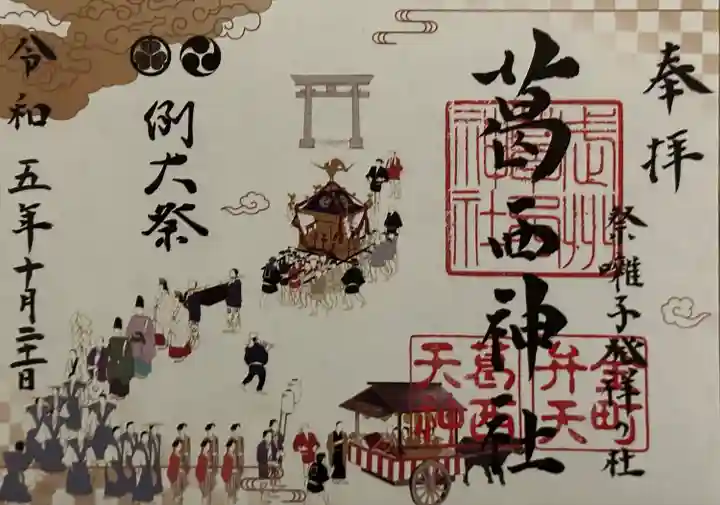 奉拝
祭囃子発祥の社
葛西神社
武州葛西神社
金町弁天
葛西天神
例大祭
令和五年十月二十一日